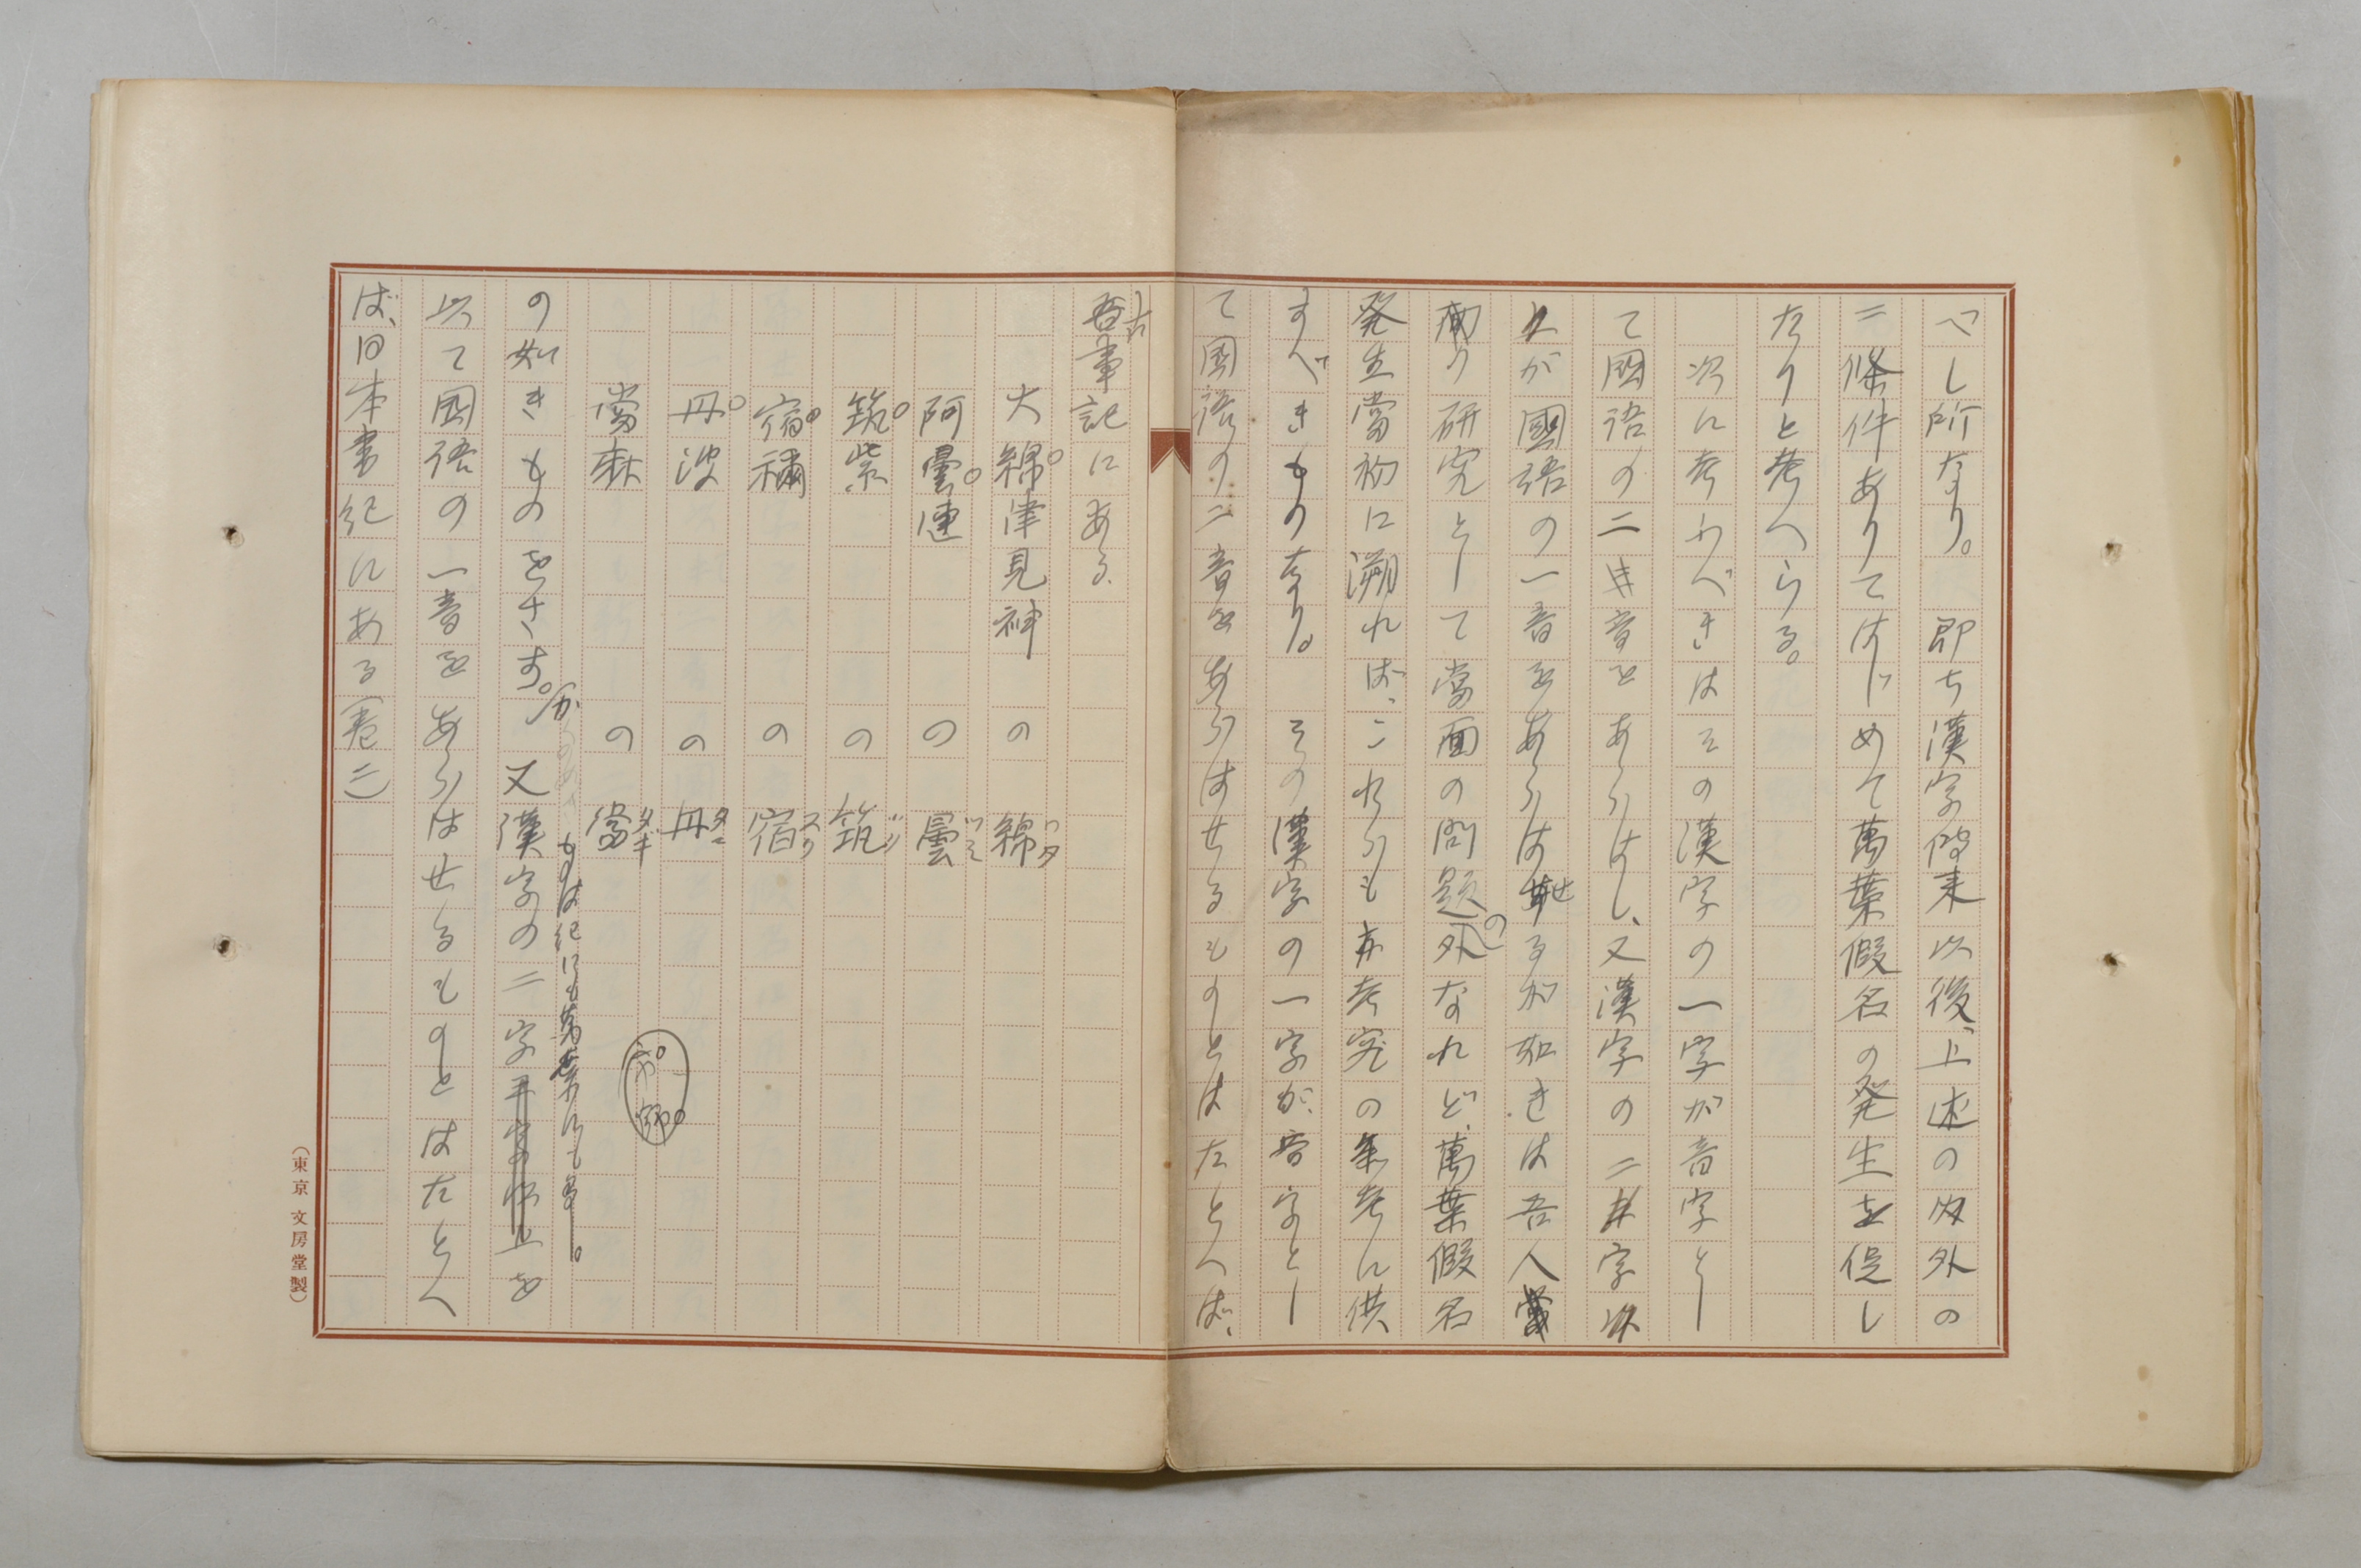 べし所なり。即ち漢字傳来以後、上述の内外の
二條件ありてはじめて萬葉假名の発生を促し
たりと考へらる。
次に考ふべきはその漢字の一字が音字とし
て國語の二音をあらはし、又漢字の二字
が國語の一音をあらはせるが如きは吾人
研究として當面の問題の外なれど、萬葉假名
発生當初に溯れば、これらも亦考究の参考に供
すべきものなり。その漢字の一字が音字とし
て國語の二音をあらはせるものとはたとへば、
古事記にある
大綿津見神 の 綿ワタ
阿曇連 の 曇ツミ
筑紫 の 筑ツク
宿禰 の 宿スク
丹波 の 丹タニ
當麻 の 當タギ
ものは紀にも萬葉にも多し。
の如きものをさす。又漢字の二字を
以て國語の一音をあらはせるものとはたとへ
ば、日本書紀にある(巻二)
(東京 文房堂製)